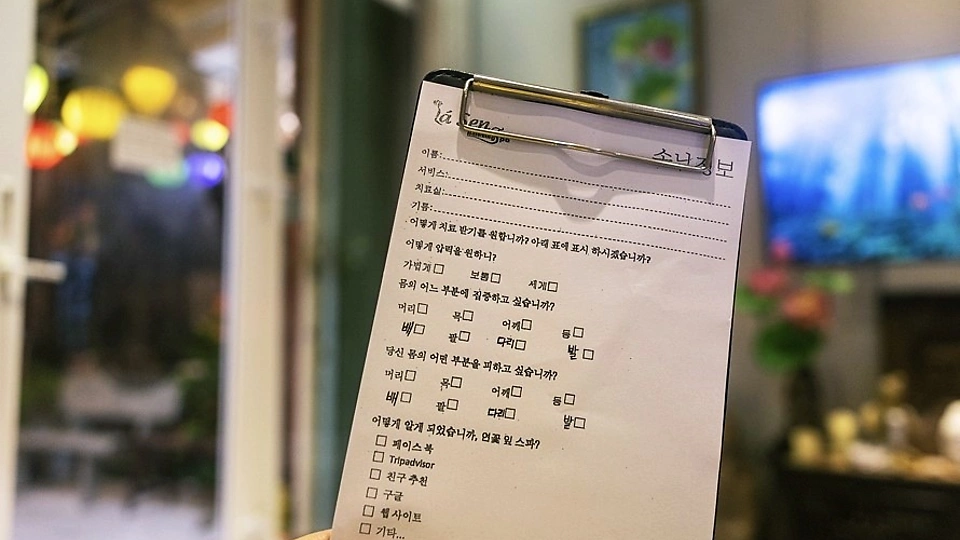 lá Sen
손님정보
이름:
서비스:
치료실:
기름:
어떻게 치료 받기를 원합니까? 아래 표에 표시 하시겠습니까?
어떻게 압력을 원하니?
가볍게 보통 세게
몸의 어느 부분에 집중하고 싶습니까?
머리 목 어깨 등
배 팔 다리 발
당신 몸의 어떤 부분을 피하고 싶습니까?
머리 목 어깨 등
배 팔 다리 발
어떻게 알게 되었습니까, 연꽃 잎 스파?
페이스 북
Tripadvisor
친구 추천
구글
웹 사이트
기타...